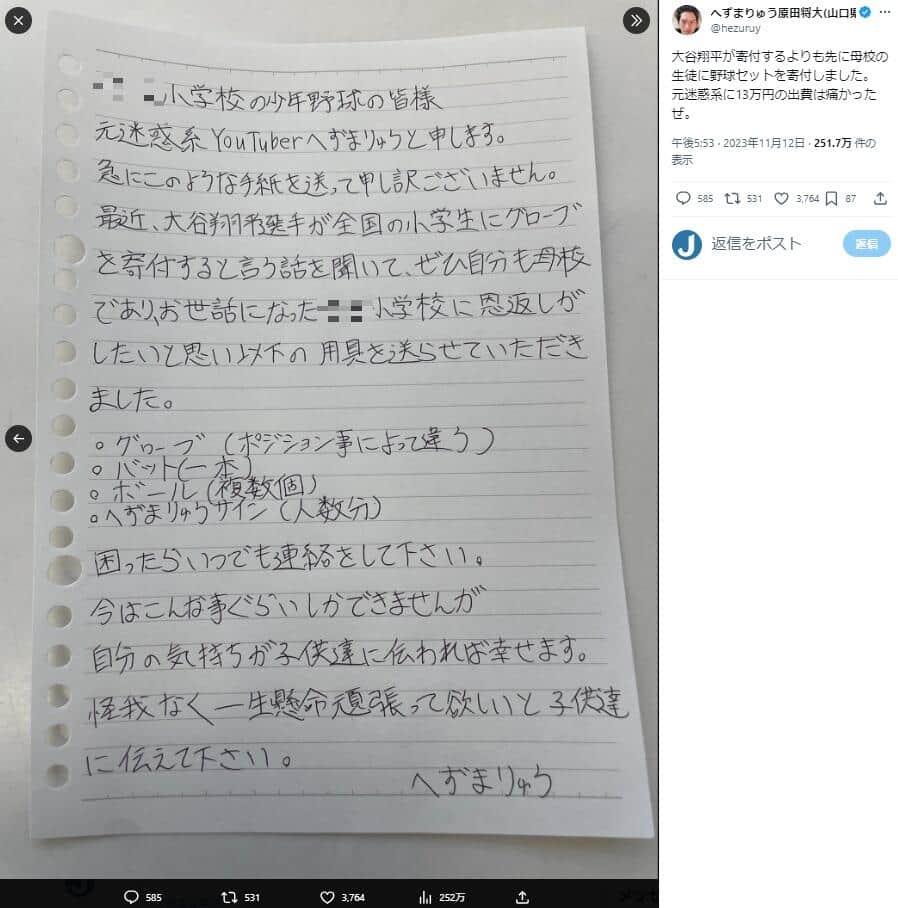 小学校の少年野球の皆様
元迷惑系YouTuberへずまりゅうと申します。
急にこのような手紙を送って申し訳ございません。
最近、大谷翔平選手が全国の小学生にグローブ
を寄付すると言う話を聞いて、ぜひ自分も母校
であり、お世話になった 小学校に恩返しが
したいと思い以下の用具を送らせていただき
ました。
○グローブ(ポジション事によって違う)
○バット(一本)
○ボール(複数個)
○へずまりゅうサイン(人数分)
困ったらいつでも連絡をして下さい。
今はこんな事ぐらいしかできませんが
自分の気持ちが子供達に伝われば幸せます。
怪我なく一生懸命頑張って欲しいと子供達
に伝えて下さい。
へずまりゅう
585 531 3,764 252万
へずまりゅう原田将大(山口県
@hezuruy
大谷翔平が寄付するよりも先に母校の
生徒に野球セットを寄付しました。
元迷惑系に13万円の出費は痛かった
ぜ。
午後5:53・2023年11月12日・251.7万 件の
表示
585 531 3,764 87
J 返信をポスト 返信